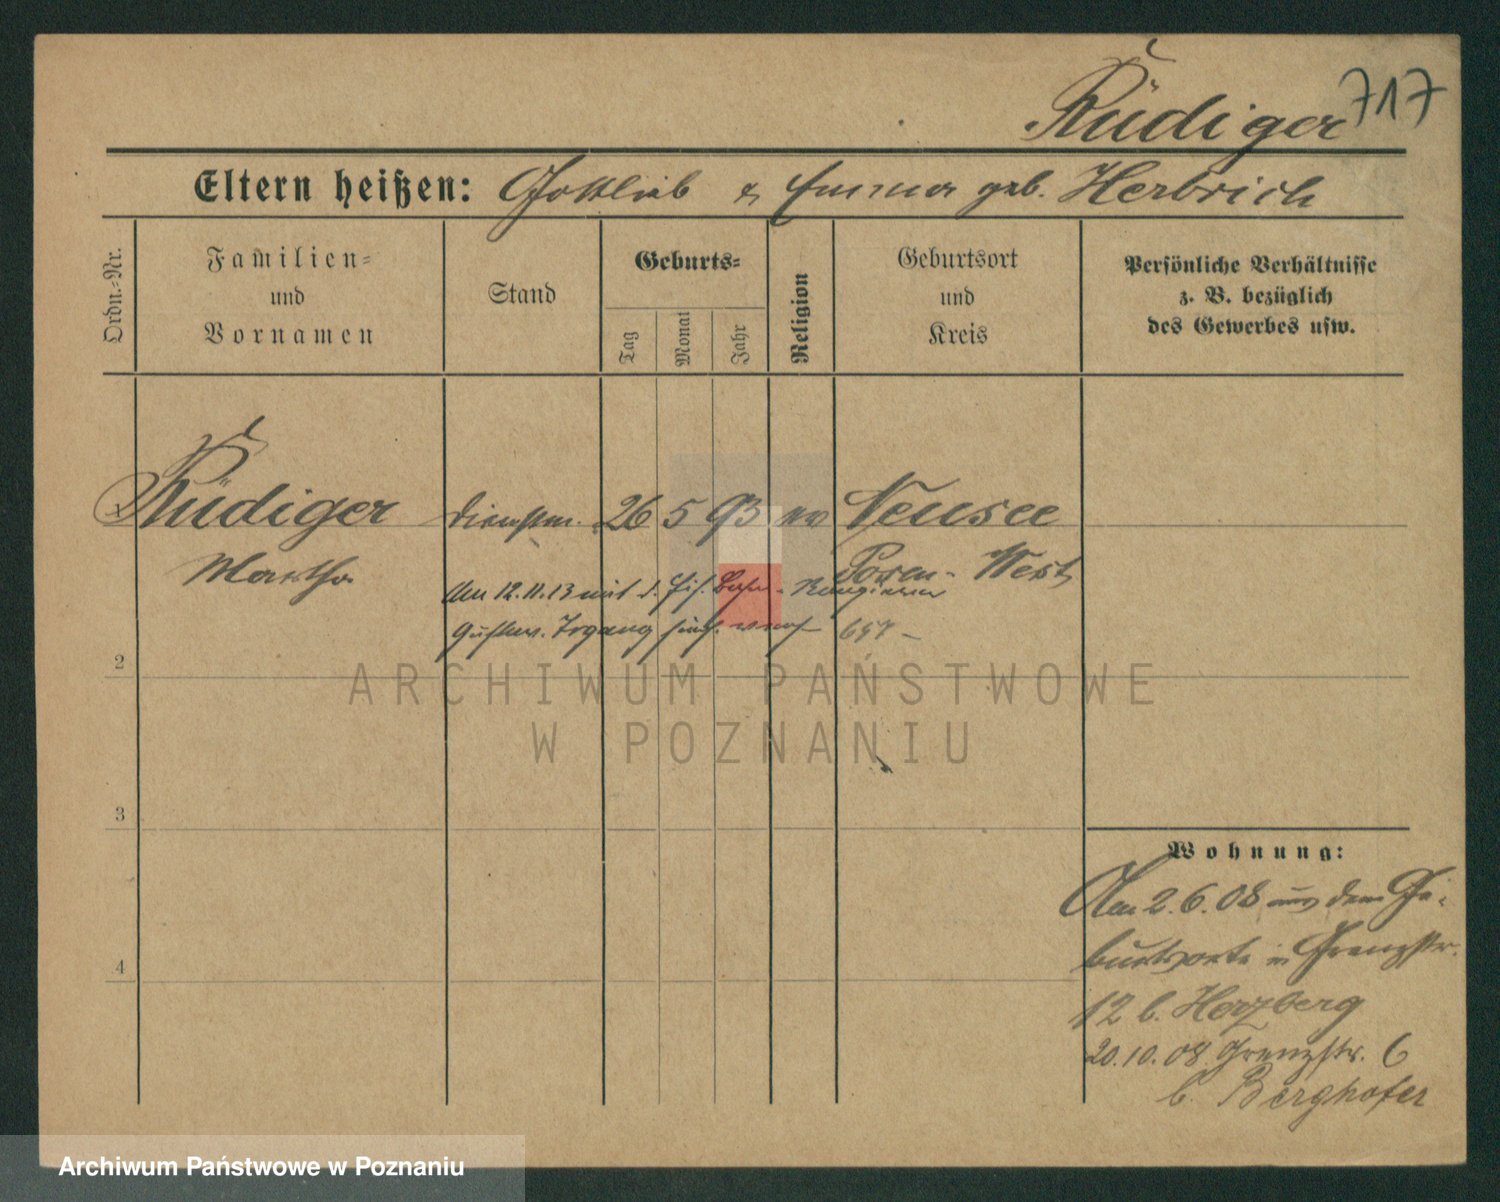 Rüdiger 717
Eltern heißen: Gottlieb & Emma geb. Herbrich
Ordn.-Nr.
Familien-
und
Vornamen
Stand
Geburts-
Tag
Monat
Jahr
Religion
Geburtsort
und
Kreis
Persönliche Verhältnisse
z. B. bezüglich
des Gewerbes usw.
Rüdiger Dienstm. 26 5 93 ev Neusee
Martha Posen-West
Am 12.11.13 mit d.
Gustav Irgang 657
2
ARCHIWUM PAŃSTWOWE
W POZNANIU
3
4
Wohnung:
Am 2.6.08 aus dem Ge-
burtsorte in Grenzstr.
12 b. Herzberg
20.10.08 Grenzstr. 6
b. Berghofer
Archiwum Państwowe w Poznaniu